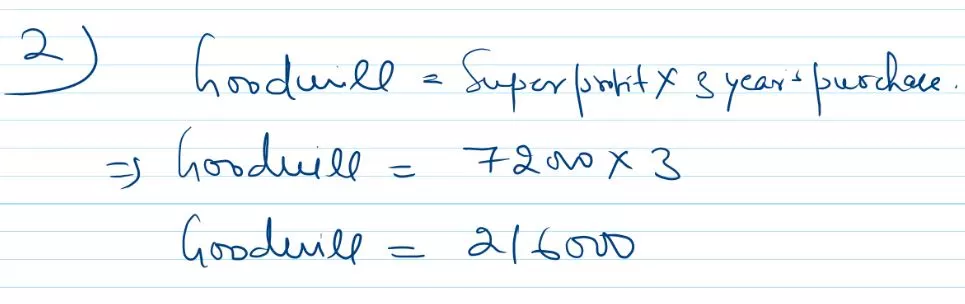 2) Goodwill = Super profit × 3 year's purchase.
⇒ Goodwill = 72000 × 3
Goodwill = 216000